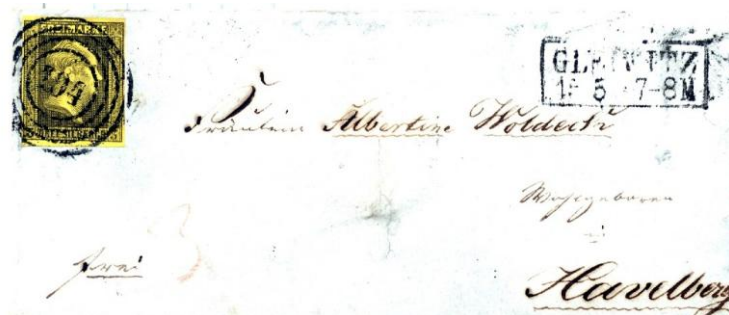 FREIMARKE
504
3 SILBERGR.
GLEIWITZ
15 5 7-8N
Fräulein Albertine Woldeck
Wohlgeboren
in
frei
Havelberg